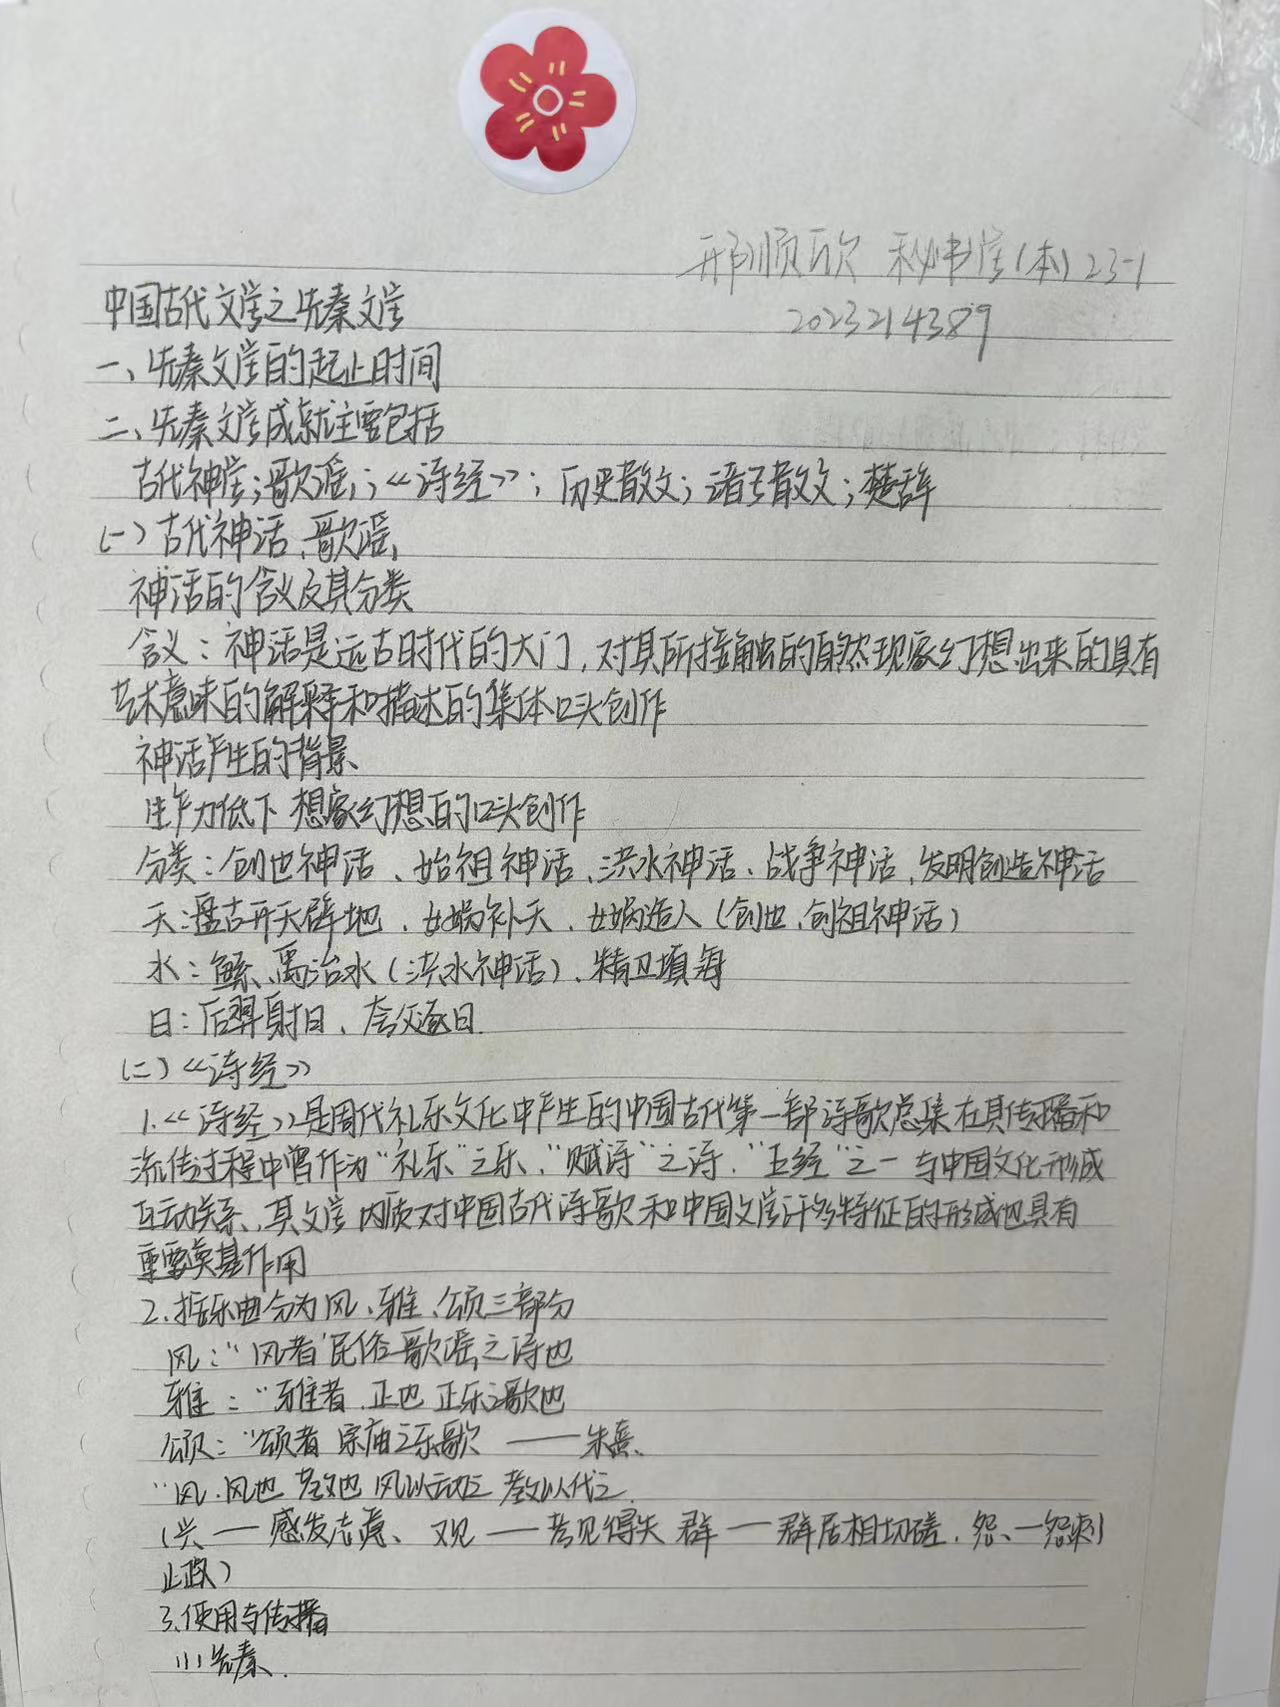 邢顺欣 秘书学(本)23-1
2023214389
中国古代文学之先秦文学
一、先秦文学的起止时间
二、先秦文学成就主要包括
古代神学;歌谣;《诗经》;历史散文;诸子散文;楚辞
(一)古代神话、歌谣
神话的含义及其分类
含义:神话是远古时代的大门,对其所接触的自然现象幻想出来的具有
艺术意味的解释和描述的集体口头创作
神话产生的背景
生产力低下 想象幻想的口头创作
分类:创世神话、始祖神话、洪水神话、战争神话、发明创造神话
天:盘古开天辟地、女娲补天、女娲造人(创世、创祖神话)
水:鲧、禹治水(洪水神话)、精卫填海
日:后羿射日、夸父逐日
(二)《诗经》
1.《诗经》是周代礼乐文化中产生的中国古代第一部诗歌总集在其传播和
流传过程中曾作为“礼乐”之乐,“赋诗”之诗,“五经”之一 与中国文化形成
互动关系、其文学内质对中国古代诗歌和中国文学许多特征的形成也具有
重要奠基作用
2.按乐曲分为风、雅、颂三部分
风:“风者 民俗歌谣之诗也
雅:“雅者,正也 正乐之歌也
颂:“颂者 宗庙之乐歌 ——朱熹
“风,风也 教也 风以动之 教以化之
(兴——感发志意、观——考见得失 群——群居相切磋,怨、—怨刺
上政)
3.使用与传播
(1)先秦、